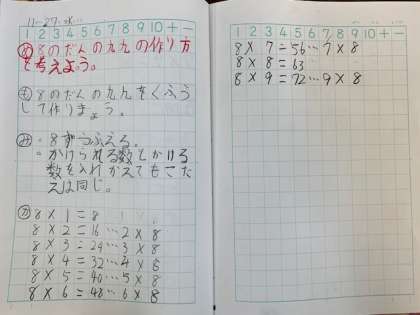 11-27.水…
1 2 3 4 5 6 7 8 9 10 + -
め 8のだんの九九の作り方
を考えよう。
も 8のだんの九九をくふう
して作りましょう。
み ・8ずつふえる。
・かけられる数とかける
数を入れかえてもこた
えは同じ。
カ
8×1=8
8×2=16…2×8
8×3=24…3×8
8×4=32…4×8
8×5=40…5×8
8×6=48…6×8
1 2 3 4 5 6 7 8 9 10 + -
8×7=56…7×8
8×8=63
8×9=72…9×8